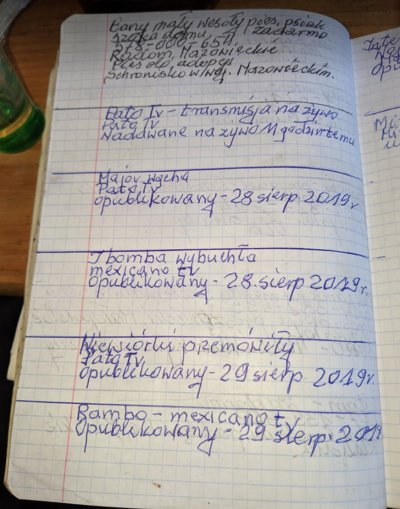 Bary mały wesoły póśr, psiak
szuka domu, za zadarmo
518-000-651
Radom, Mazowieckie
Pies do adopcji
Schronisko w woj. Mazowieckim.
Pato Tv - transmisja na żywo
Pato Tv
Nadawane na żywo 11 godzin temu
Major wącha
Pato Tv
opublikowany - 28 sierp 2019 r
I bomba wybuchła
mexicano tv
opublikowany - 28. sierp 2019 r.
Wiewiórki przemówiły
Pato Tv
opublikowany - 29 sierp 2019 r.
Rambo - mexicano tv
opublikowany - 29 sierp. 2019